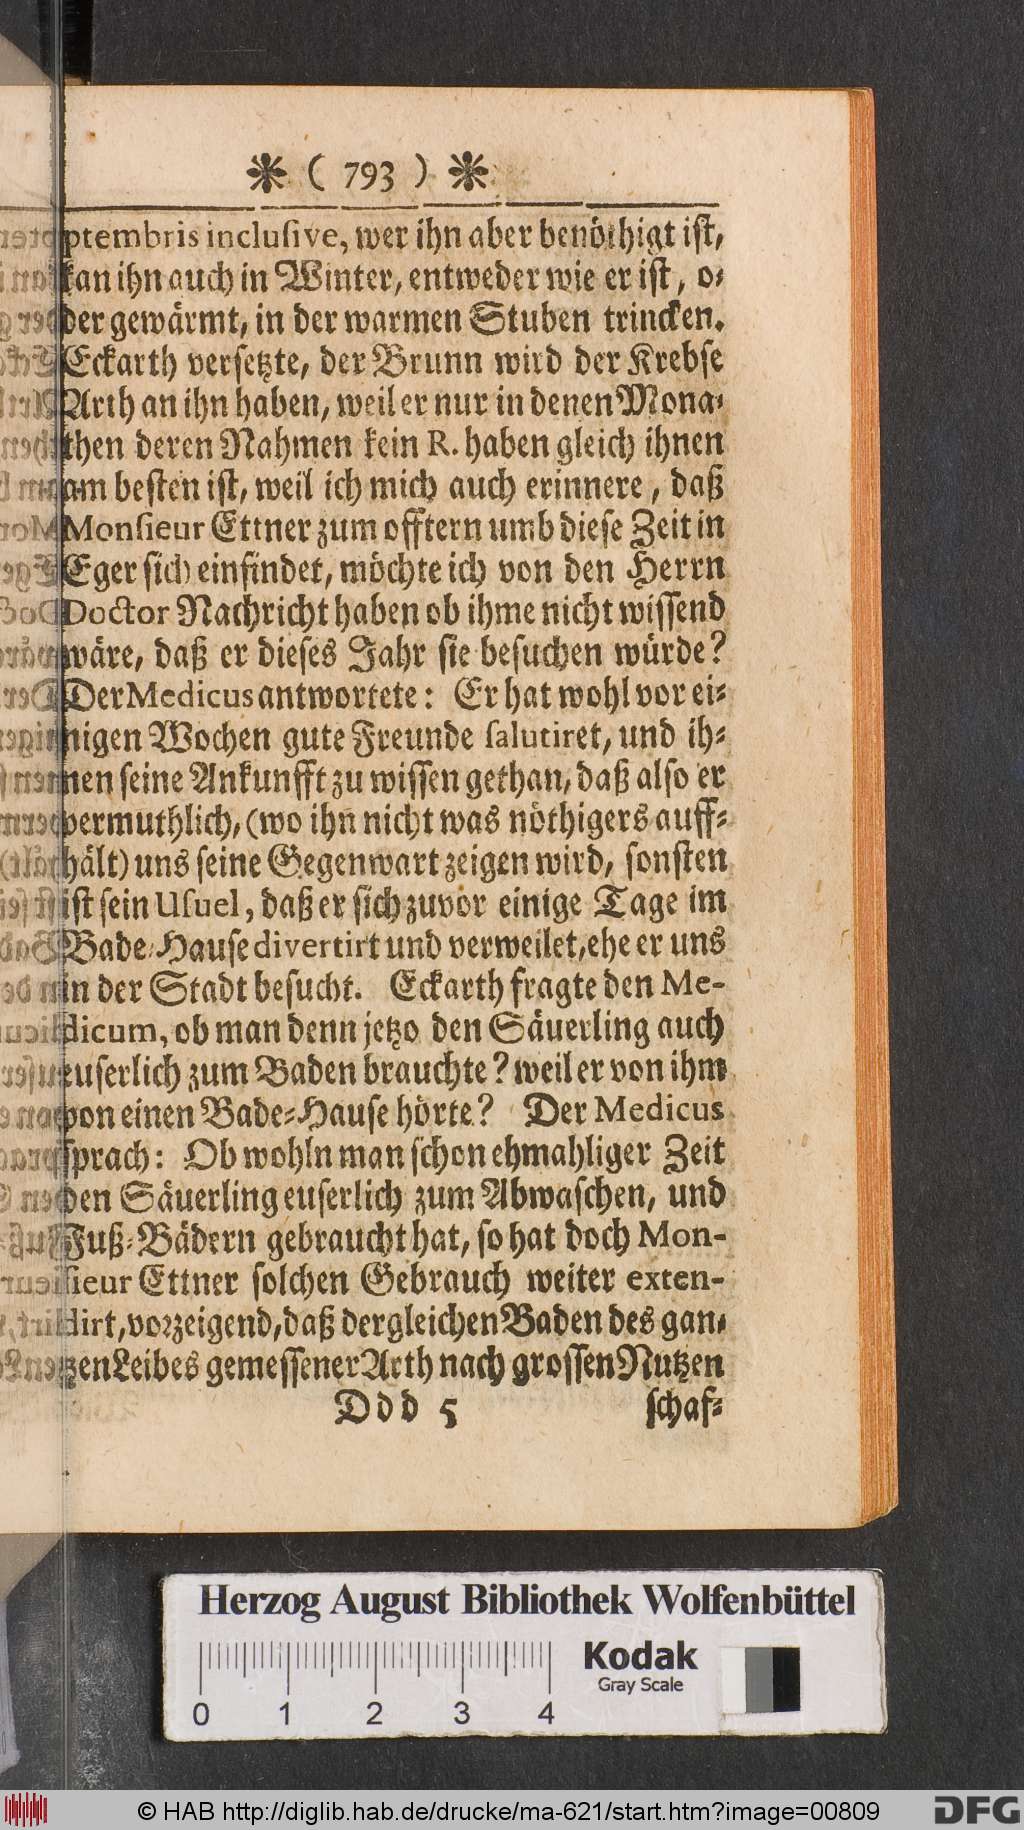 ❋ ( 793 ) ❋
ptembris inclusive, wer ihn aber benöthigt ist,
kan ihn auch in Winter, entweder wie er ist, o-
der gewärmt, in der warmen Stuben trincken.
Eckarth versetzte, der Brunn wird der Krebse
Arth an ihn haben, weil er nur in denen Mona-
then deren Nahmen kein R. haben gleich ihnen
am besten ist, weil ich mich auch erinnere, daß
Monsieur Ettner zum offtern umb diese Zeit in
Eger sich einfindet, möchte ich von den Herrn
Doctor Nachricht haben ob ihme nicht wissend
wäre, daß er dieses Jahr sie besuchen würde?
Der Medicus antwortete: Er hat wohl vor ei-
nigen Wochen gute Freunde salutiret, und ih-
nen seine Ankunfft zu wissen gethan, daß also er
vermuthlich, (wo ihn nicht was nöthigers auff-
hält) uns seine Gegenwart zeigen wird, sonsten
ist sein Usuel, daß er sich zuvor einige Tage im
Bade-Hause divertirt und verweilet, ehe er uns
in der Stadt besucht. Eckarth fragte den Me-
dicum, ob man denn jetzo den Säuerling auch
euserlich zum Baden brauchte? weil er von ihm
von einen Bade-Hause hörte? Der Medicus
sprach: Ob wohln man schon ehmahliger Zeit
den Säuerling euserlich zum Abwaschen, und
Fuß-Bädern gebraucht hat, so hat doch Mon-
sieur Ettner solchen Gebrauch weiter exten-
dirt, vorzeigend, daß dergleichen Baden des gan-
tzen Leibes gemessener Arth nach grossen Nutzen
Ddd 5 schaf-
Herzog August Bibliothek Wolfenbüttel
Kodak
Gray Scale
0 1 2 3 4
© HAB http://diglib.hab.de/drucke/ma-621/start.htm?image=00809
DFG